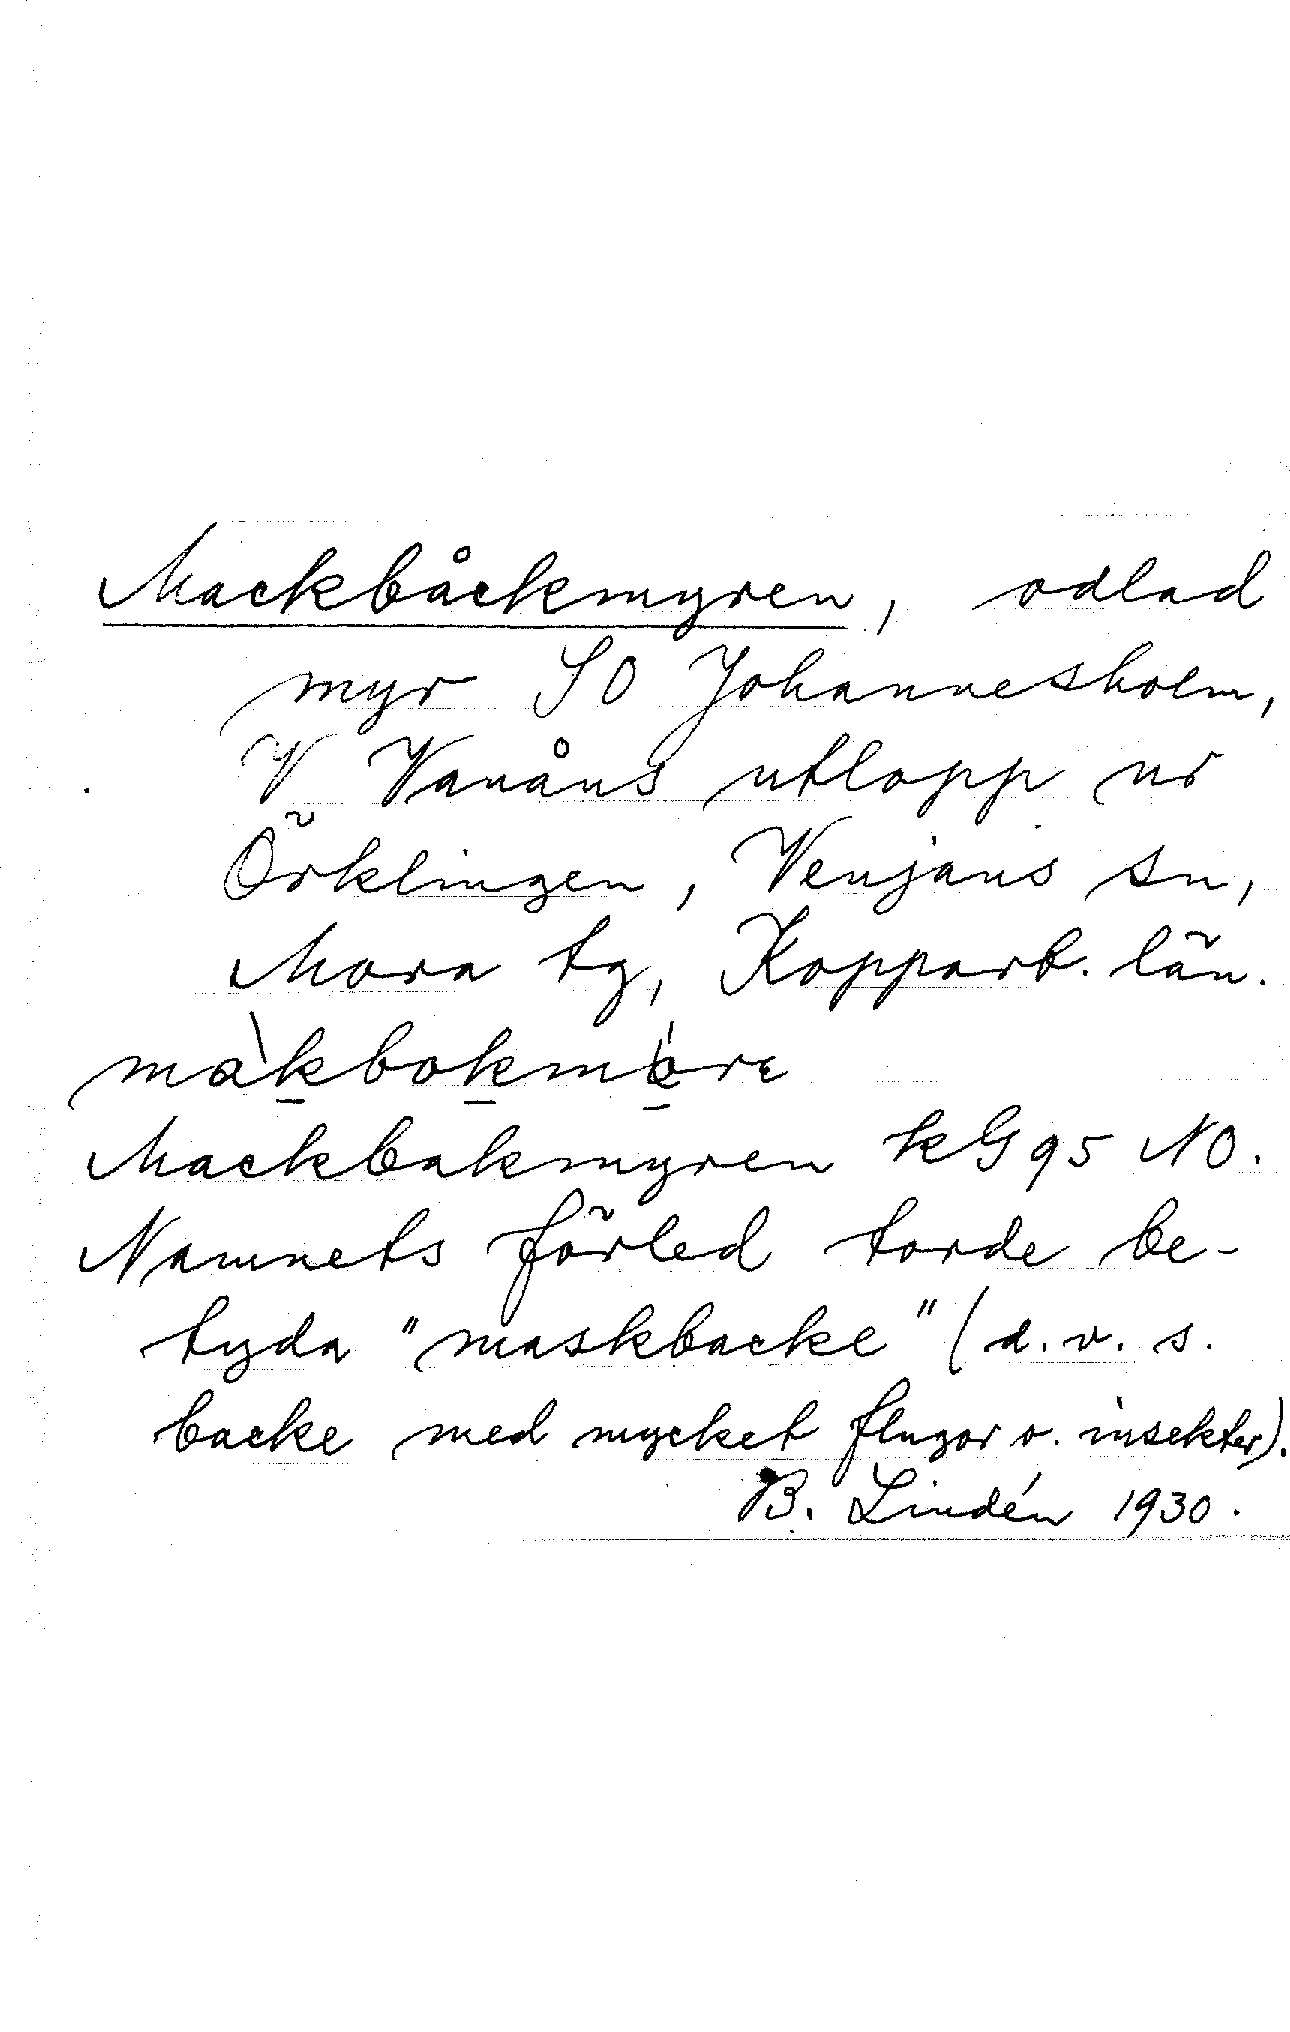 Mackbåckmyren, odlad
myr SO Johannesholm,
V Vanåns utlopp ur
Örklingen, Venjans sn,
Mora tg, Kopparb. län.
Mackbakmyren kG95 NO.
Namnets förled torde be-
tyda "maskbacke" (d.v.s.
backe med mycket flugor o. insekter).
B. Lindén 1930.